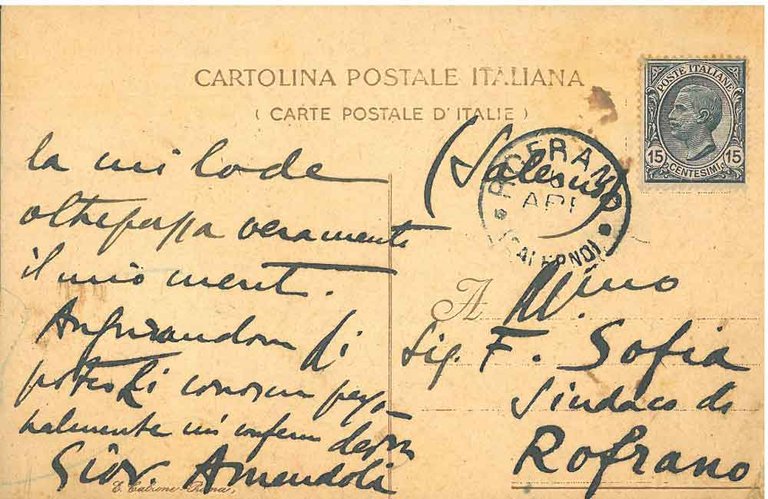 CARTOLINA POSTALE ITALIANA
( CARTE POSTALE D'ITALIE )
POSTE ITALIANE
15 15
CENTESIMI
ROFRANO
API
(SALERNO)
la mi lode
oltrepassa veramente
il mio merit.
Augurandom di
poterLi conoscer perso
nalmente mi confermo
Giov. Amendola
(Salerno)
A Ill.mo
Sig. F. Sofia
Sindaco di
Rofrano